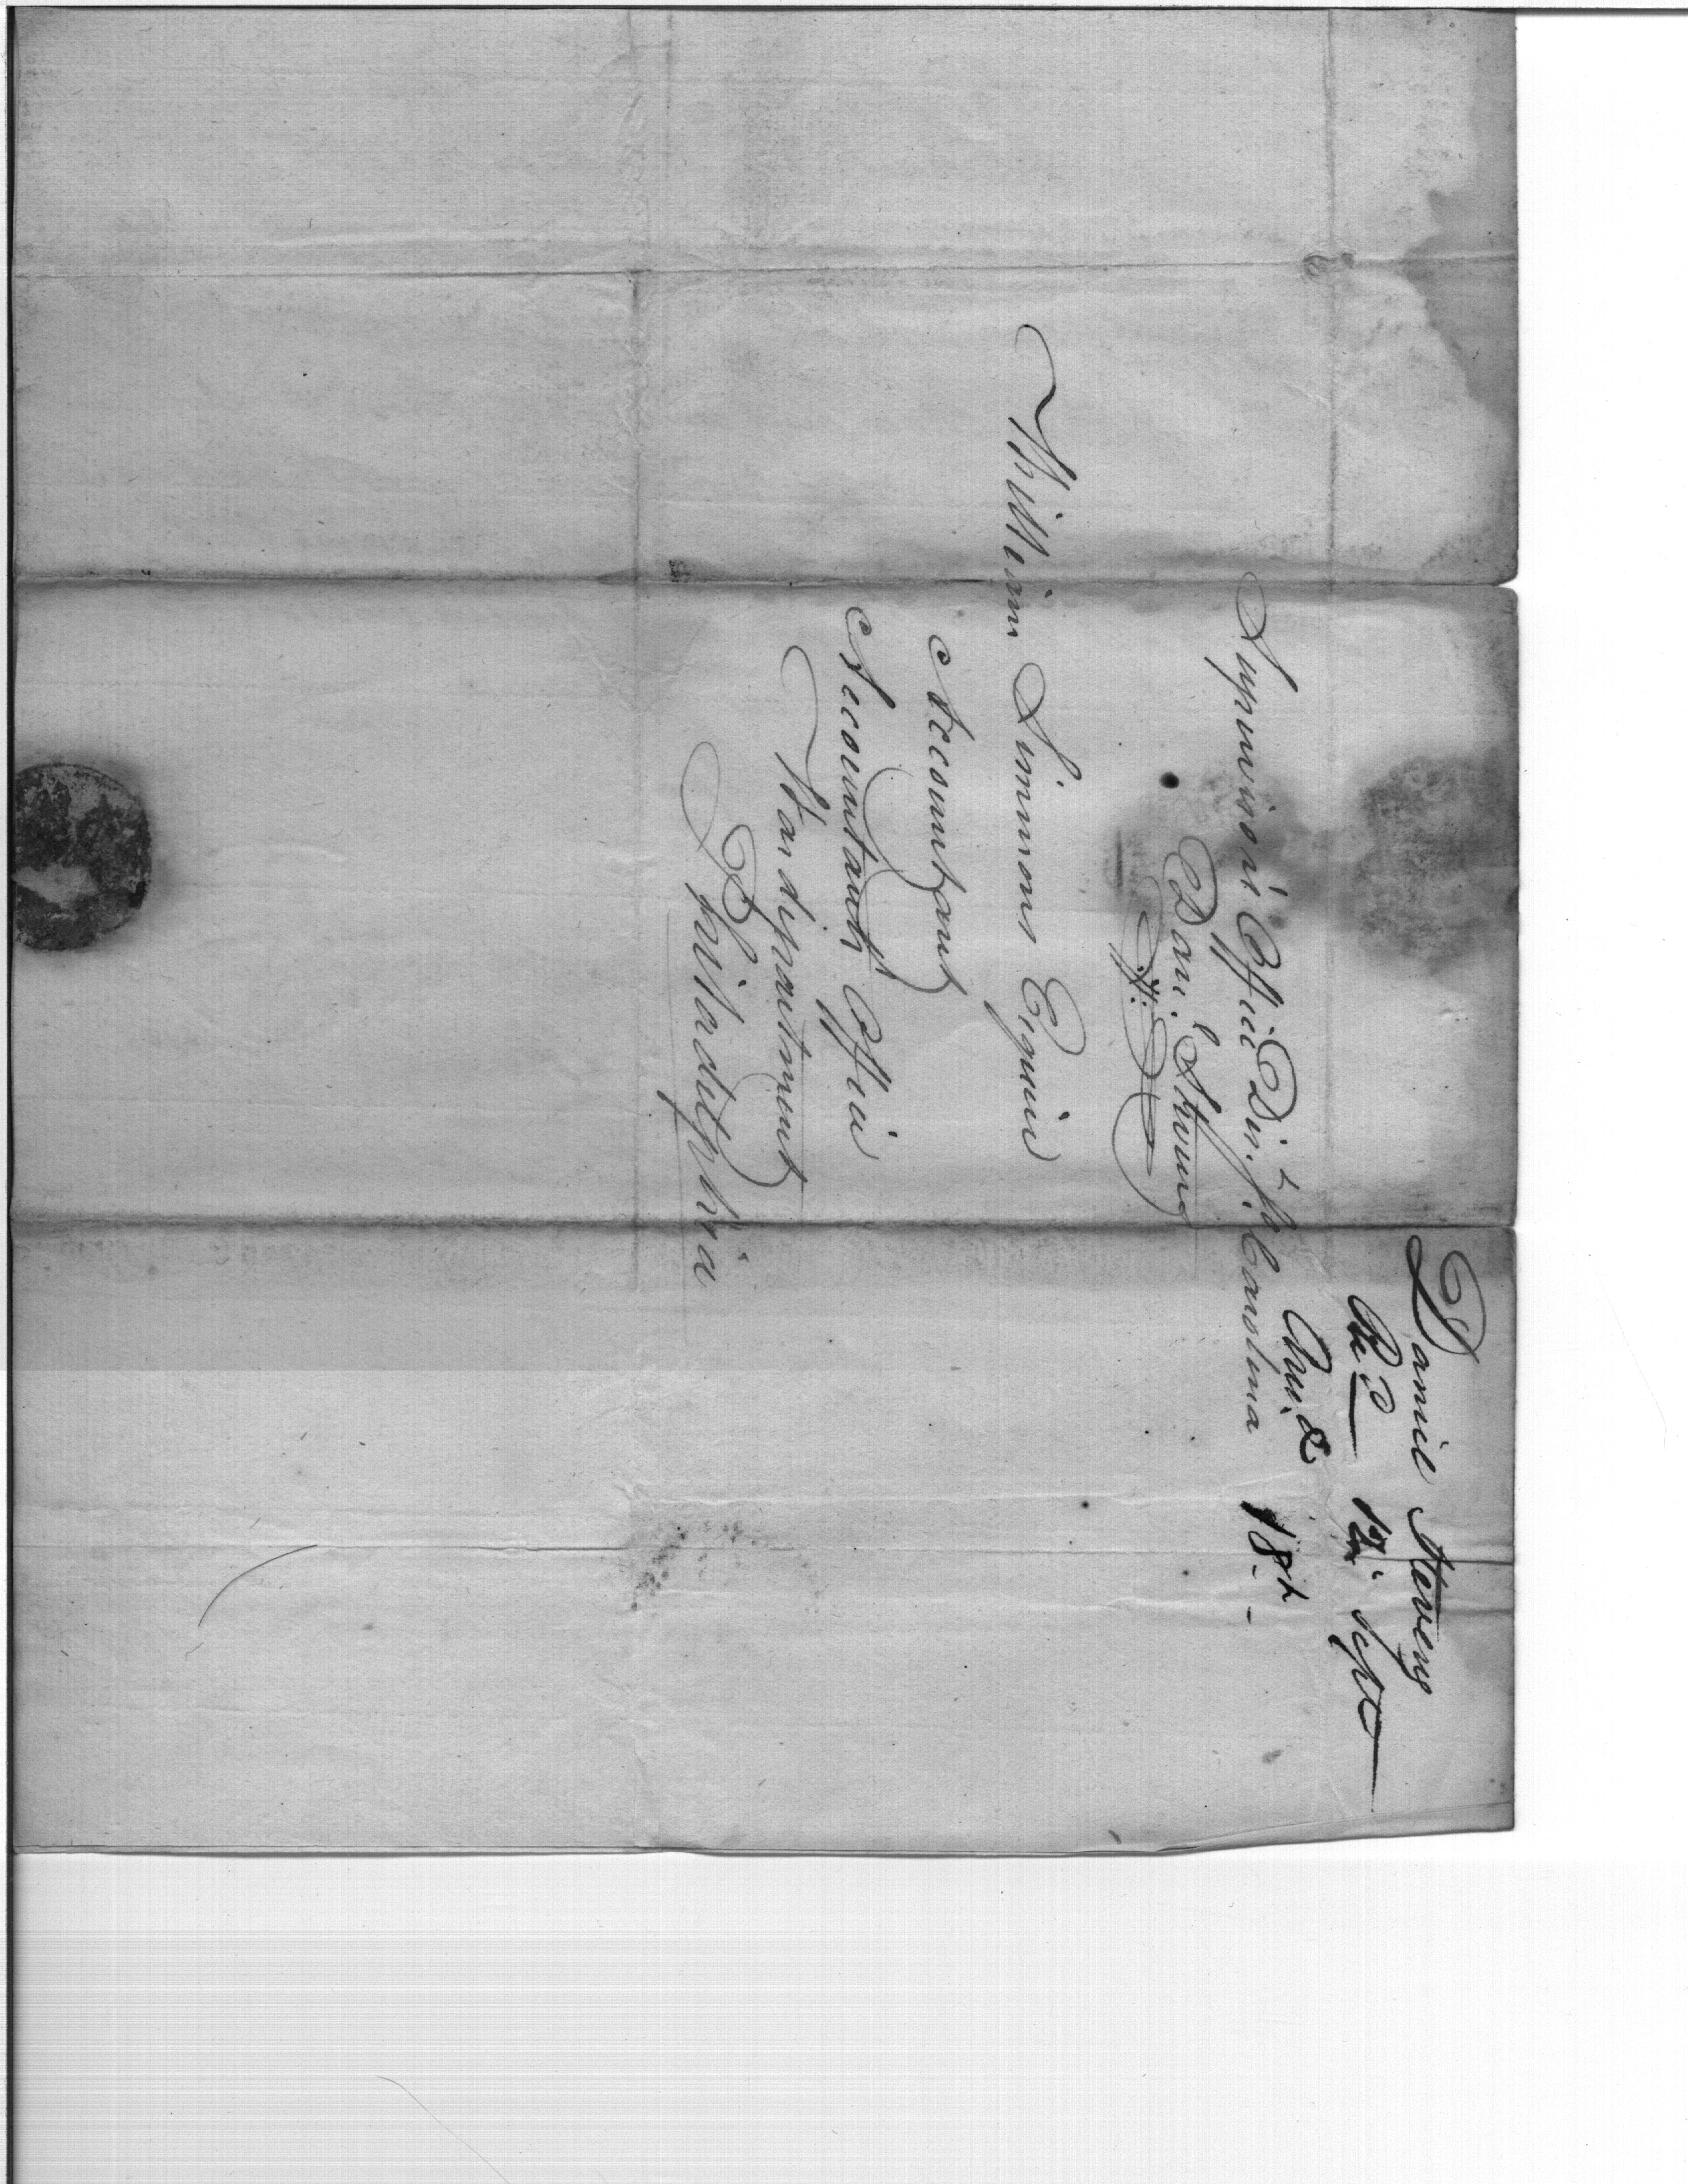 Daniel Stevens
Rec.d 12th Sept
Ans.d 18th
Supervisor's Office Dis.t So Carolina
Dan.l Stevens
William Simmons Esquire
Accountant
Accountants Office
War department
Philadelphia